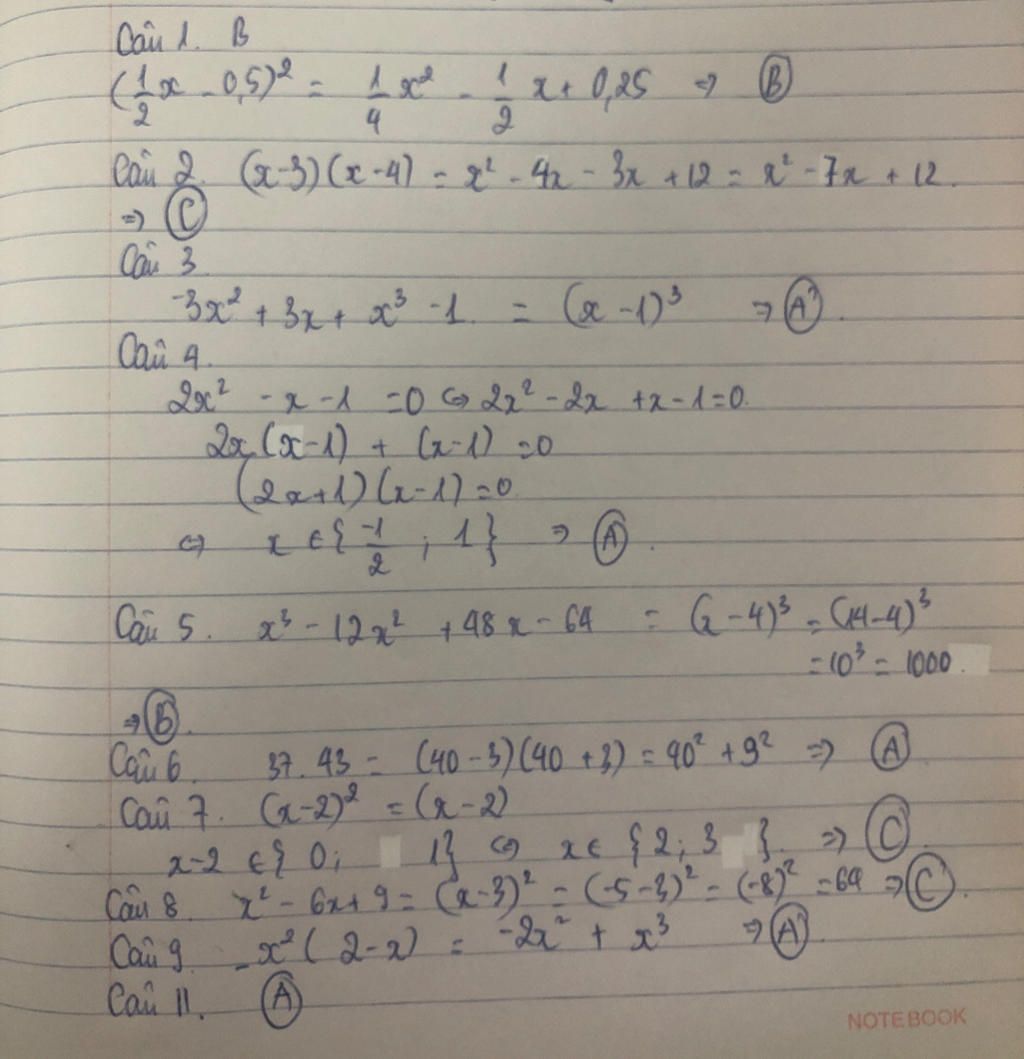 Câu 1. B
(1/2 x - 0,5)² = 1/4 x² - 1/2 x + 0,25 => B
Câu 2. (x-3)(x-4) = x² - 4x - 3x + 12 = x² - 7x + 12.
=> C
Câu 3
-3x² + 3x + x³ - 1 = (x - 1)³ => A.
Câu 4.
2x² - x - 1 = 0 <=> 2x² - 2x + x - 1 = 0.
2x(x-1) + (x-1) = 0
(2x+1)(x-1) = 0
<=> x ∈ { -1/2 ; 1 } => A.
Câu 5. x³ - 12x² + 48x - 64 = (x - 4)³ = (14-4)³
= 10³ = 1000.
=> B.
Câu 6. 37.43 = (40-3)(40+3) = 40² + 9² => A
Câu 7. (x-2)² = (x-2)
x-2 ∈ { 0; 1} <=> x ∈ {2; 3 }. => C.
Câu 8. x² - 6x + 9 = (x-3)² = (-5-3)² = (-8)² = 64 => C.
Câu 9. -x²( 2-x) = -2x² + x³ => A.
Câu 11. A
NOTEBOOK